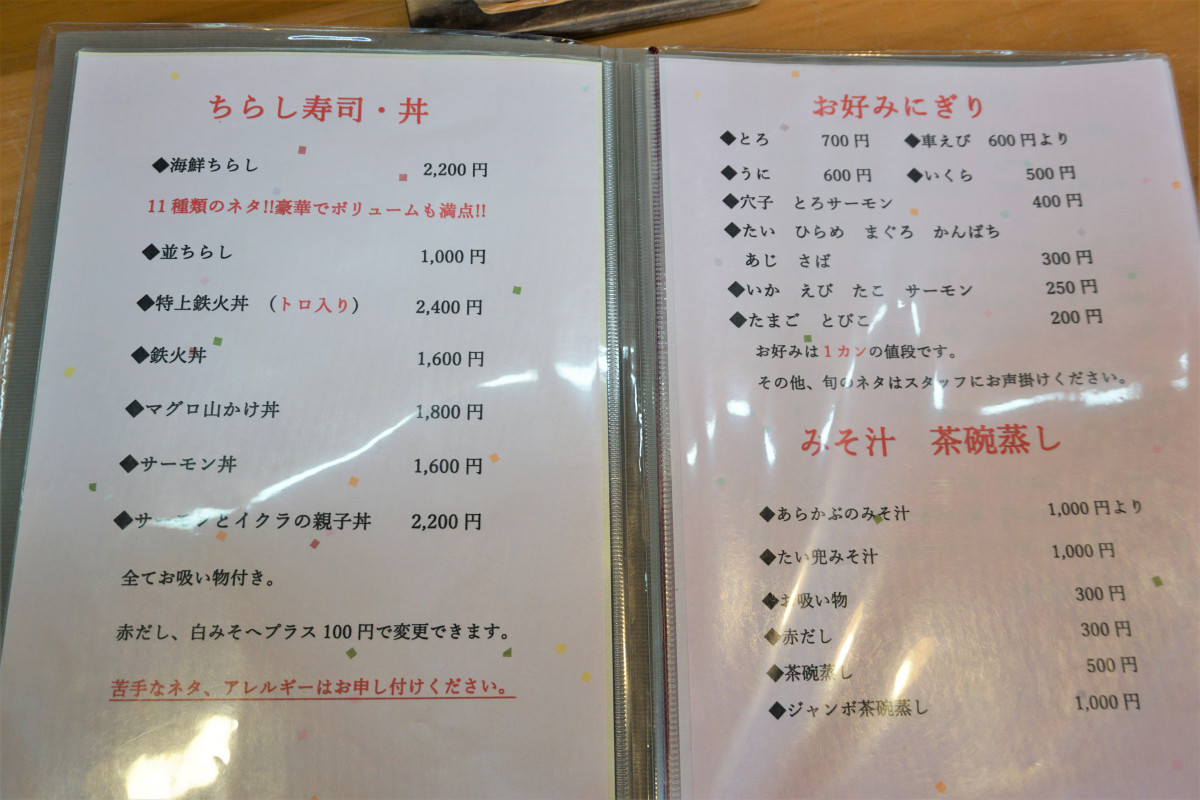 ちらし寿司・丼
◆海鮮ちらし 2,200円
11種類のネタ!!豪華でボリュームも満点!!
◆並ちらし 1,000円
◆特上鉄火丼 （トロ入り） 2,400円
◆鉄火丼 1,600円
◆マグロ山かけ丼 1,800円
◆サーモン丼 1,600円
◆サーモンとイクラの親子丼 2,200円
全てお吸い物付き。
赤だし、白みそへプラス100円で変更できます。
苦手なネタ、アレルギーはお申し付けください。
お好みにぎり
◆とろ 700円 ◆車えび 600円より
◆うに 600円 ◆いくら 500円
◆穴子 とろサーモン 400円
◆たい ひらめ まぐろ かんぱち
あじ さば 300円
◆いか えび たこ サーモン 250円
◆たまご とびこ 200円
お好みは1カンの値段です。
その他、旬のネタはスタッフにお声掛けください。
みそ汁 茶碗蒸し
◆あらかぶのみそ汁 1,000円より
◆たい兜みそ汁 1,000円
◆お吸い物 300円
◆赤だし 300円
◆茶碗蒸し 500円
◆ジャンボ茶碗蒸し 1,000円